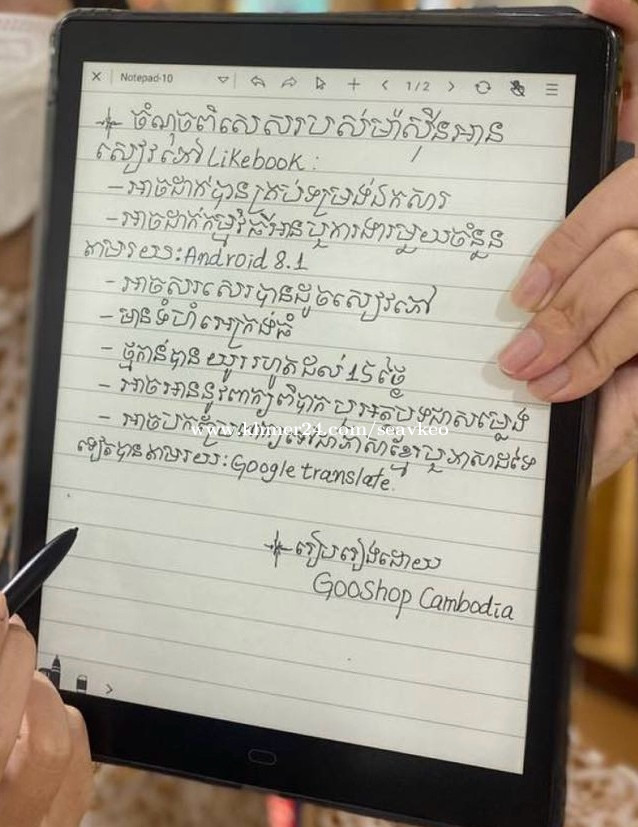 Notepad-10
1/2
ចំណុចពិសេសរបស់ម៉ាស៊ីនអាន
សៀវភៅ Likebook :
- អាចដាក់បានគ្រប់ទម្រង់ឯកសារ
- អាចដាក់កម្មវិធីអានឬការងារមួយចំនួន
តាមរយៈ Android 8.1
- អាចសរសេរបានដូចសៀវភៅ
- មានទំហំអេក្រង់ធំ
- ថ្មកាន់បានយូររហូតដល់ 15 ថ្ងៃ
- អាចអាននូវពាក្យពិបាកឬអត្ថបទជាសម្លេង
- អាចបកប្រែពាក្យទៅជាភាសាខ្មែរឬភាសាដទៃ
www.khmer24.com/seavkeo
ទៀតបានតាមរយៈ Google translate.
រៀបរៀងដោយ
GooShop Cambodia